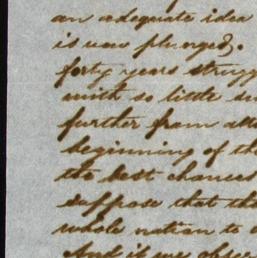 an adequate idea
is now plunged.
forty years strugg
with so little su
further from atta
beginning of the
the best chances
suppose that the
whole nation to
And if we obser